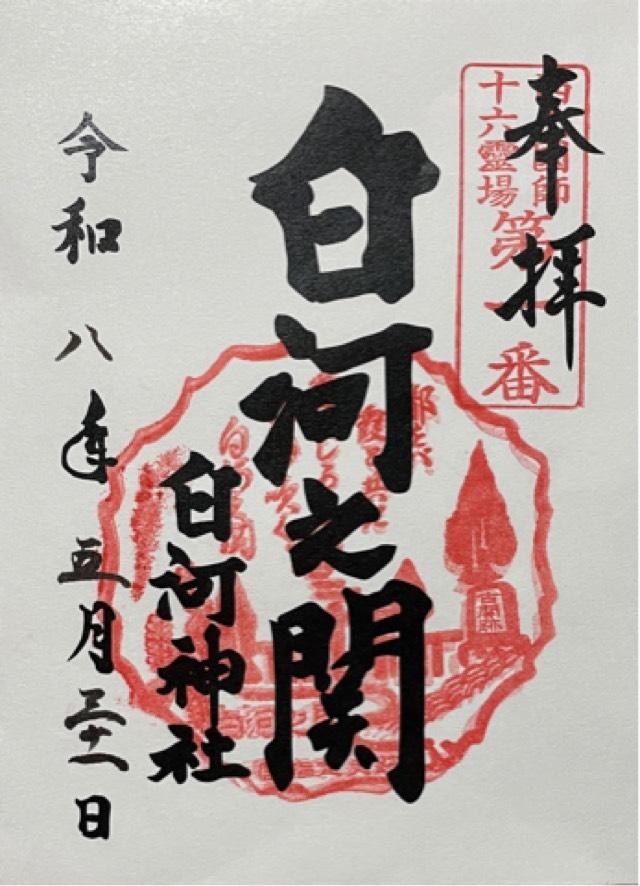 奉拝
十六霊場
第一番
白河之関
白河神社
古関跡
令和八年五月三十一日